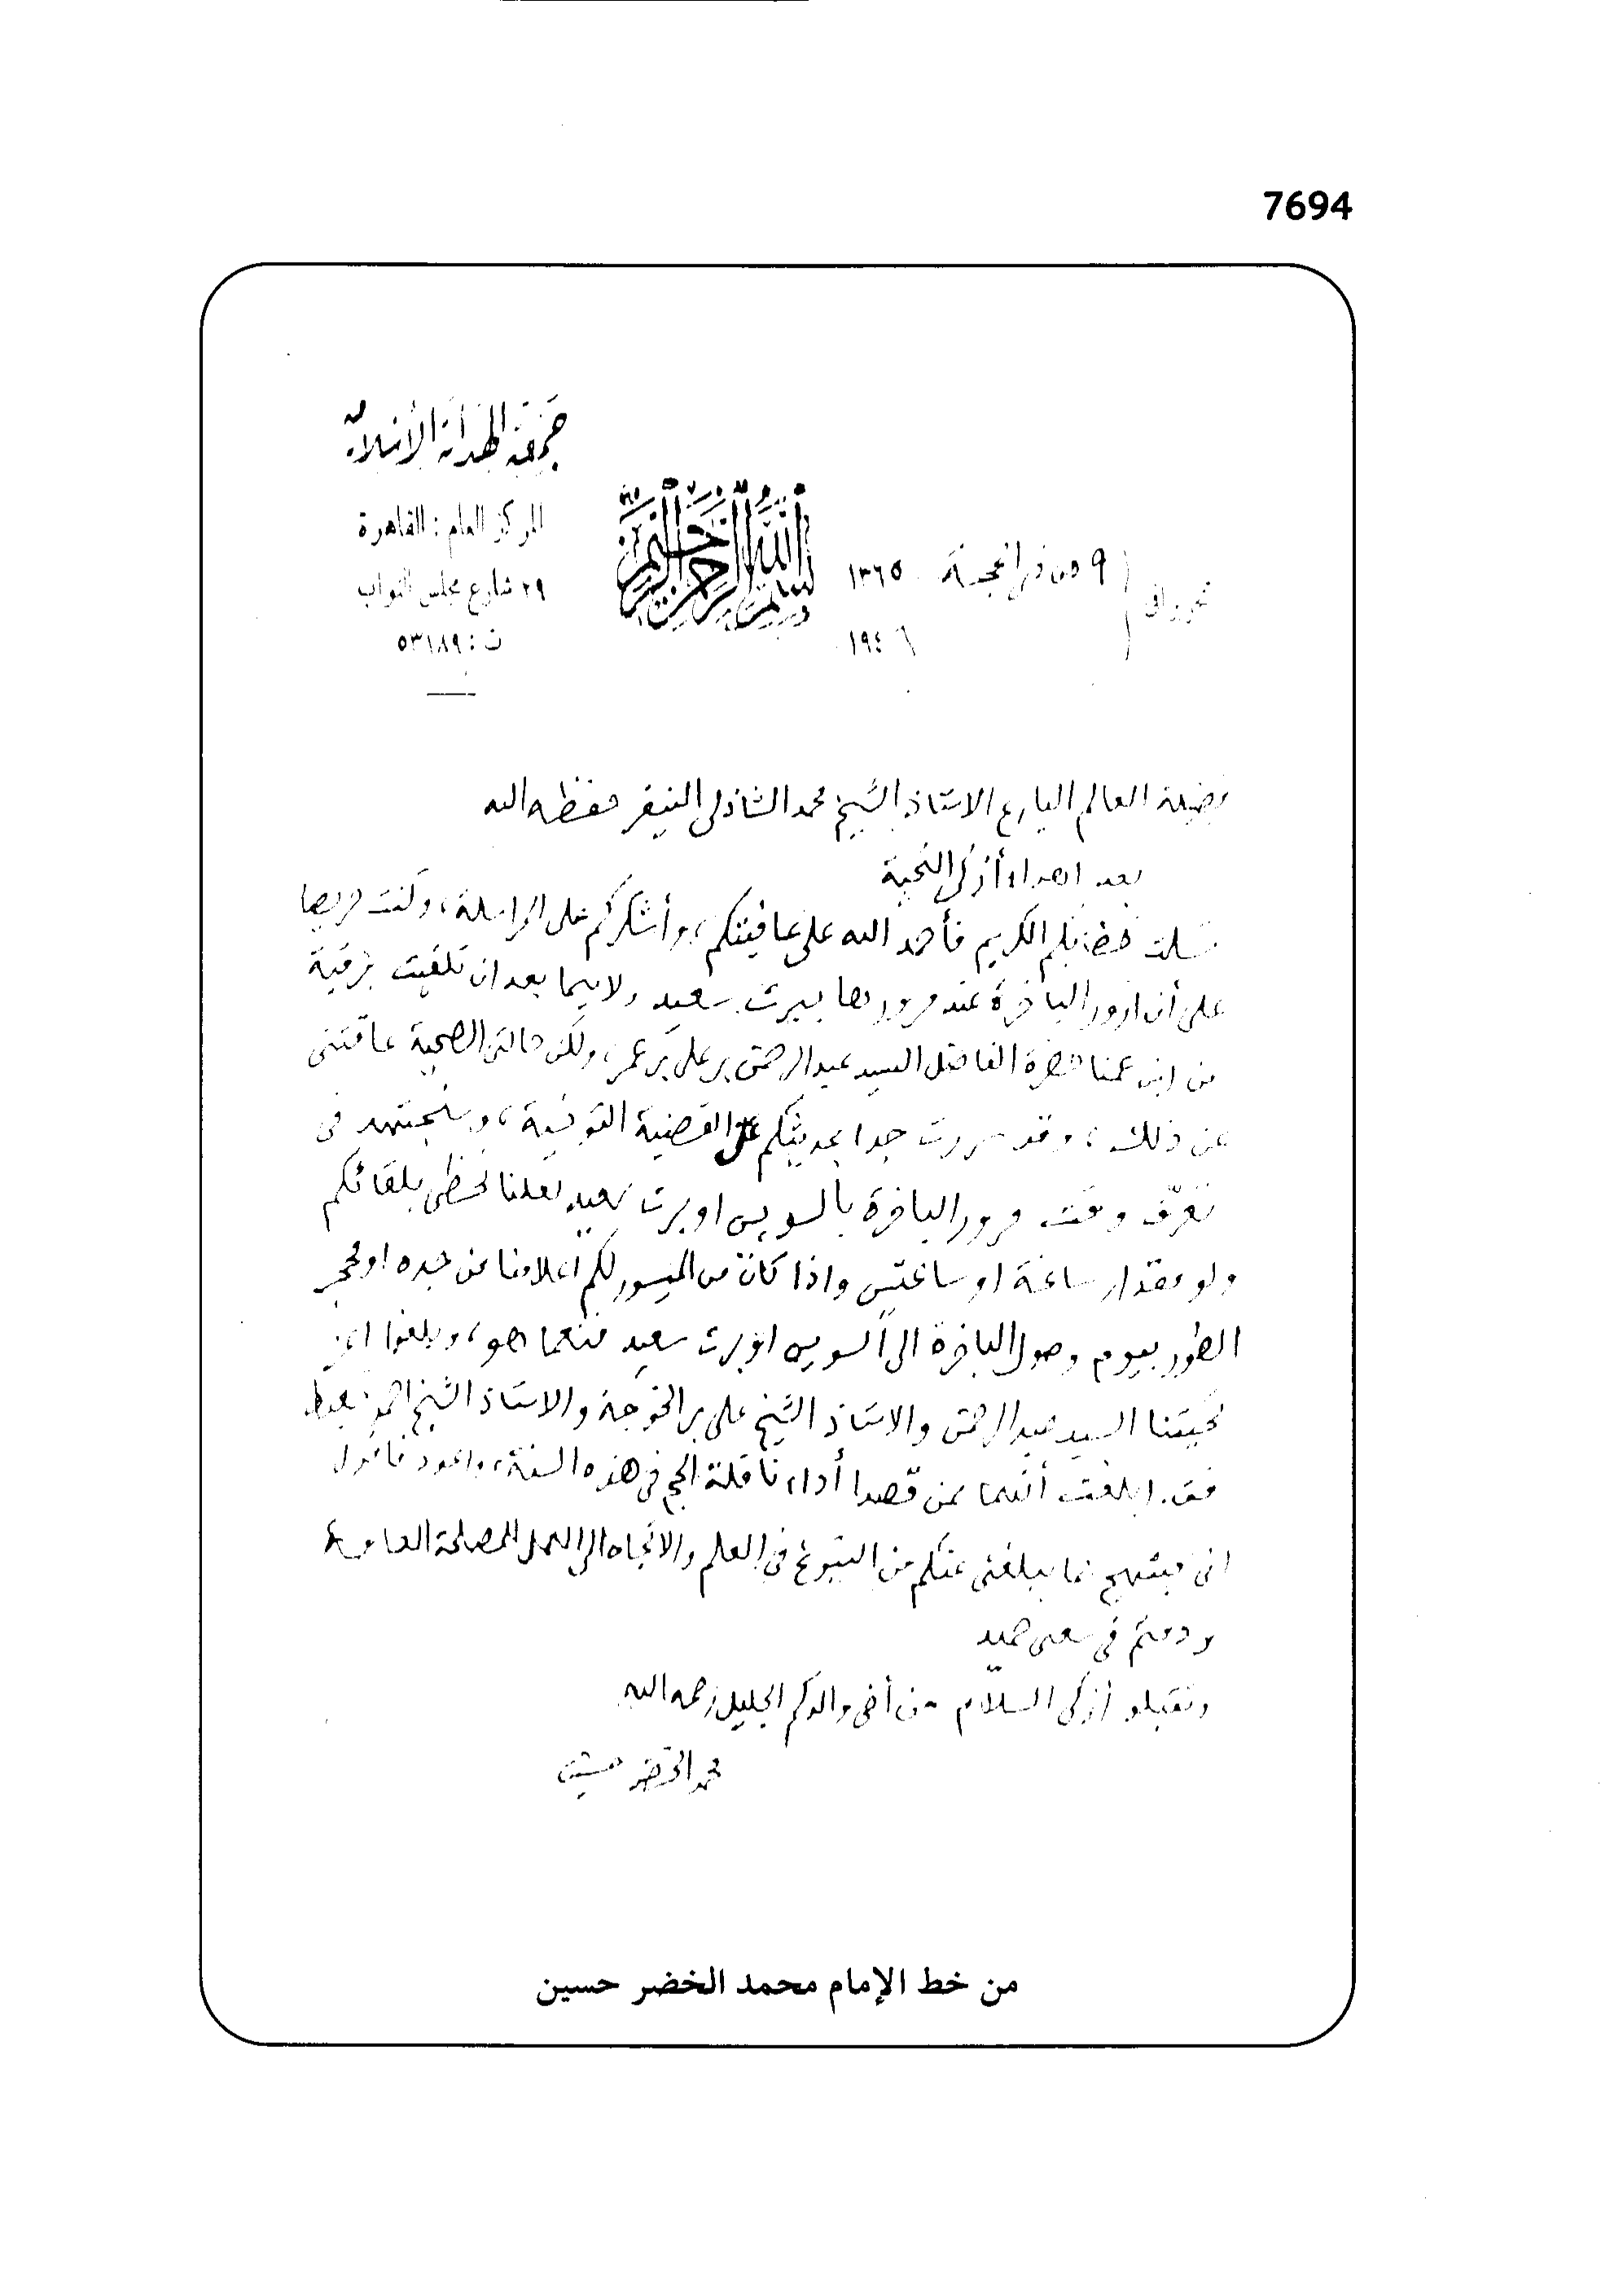 7694
جمعية الهداية الإسلامية
المركز العام : القاهرة
٢٩ شارع مجلس النواب
ت : ٥٣١٨٩
بسم الله الرحمن الرحيم
تحريرا في ٩ من ذي الحجة سنة ١٣٦٥
١٩٤٦
فضيلة العالم البارع الاستاذ الشيخ محمد الشاذلي النيفر حفظه الله
بعد اهداء أزكى التحية
تسلمت خطابكم الكريم فأحمد الله على عافيتكم، وأشكركم على المراسلة، وكنت حريصا
على أن ازور الباخرة عند مرورها ببرت سعيد ولا سيما بعد ان تلقيت برقية
من ابن عمنا حضرة الفاضل السيد عبد الرحمن بن علي بن عمر، ولكن حالتي الصحية عاقتني
عن ذلك، وقد سررت جدا بحديثكم عن القضية التونسية، وسنجتهد في
تعرّف وقت مرور الباخرة بالسويس او برت سعيد لعلنا نحظى بلقائكم
ولو مقدار ساعة او ساعتين واذا كان من الميسور لكم اعلامنا من جده او محجر
الطور بيوم وصول الباخرة الى السويس او برت سعيد فنعما هو، وبلغوا
تحيتنا السيد عبد الرحمن والاستاذ الشيخ علي بن الخوجة والاستاذ الشيخ احمد
فقد ابلغت أنهما ممن قصدا أداء نافلة الحج في هذه السنة، واعود فاقول
اني مبتهج بما يبلغني عنكم من النبوغ في العلم والاتجاه الى العمل للمصلحة العامة
ودمتم في سعي حميد
وتقبلو أزكى السلام من أخي والدكم الجليل رحمه الله
محمد الخضر حسين
من خط الإمام محمد الخضر حسين